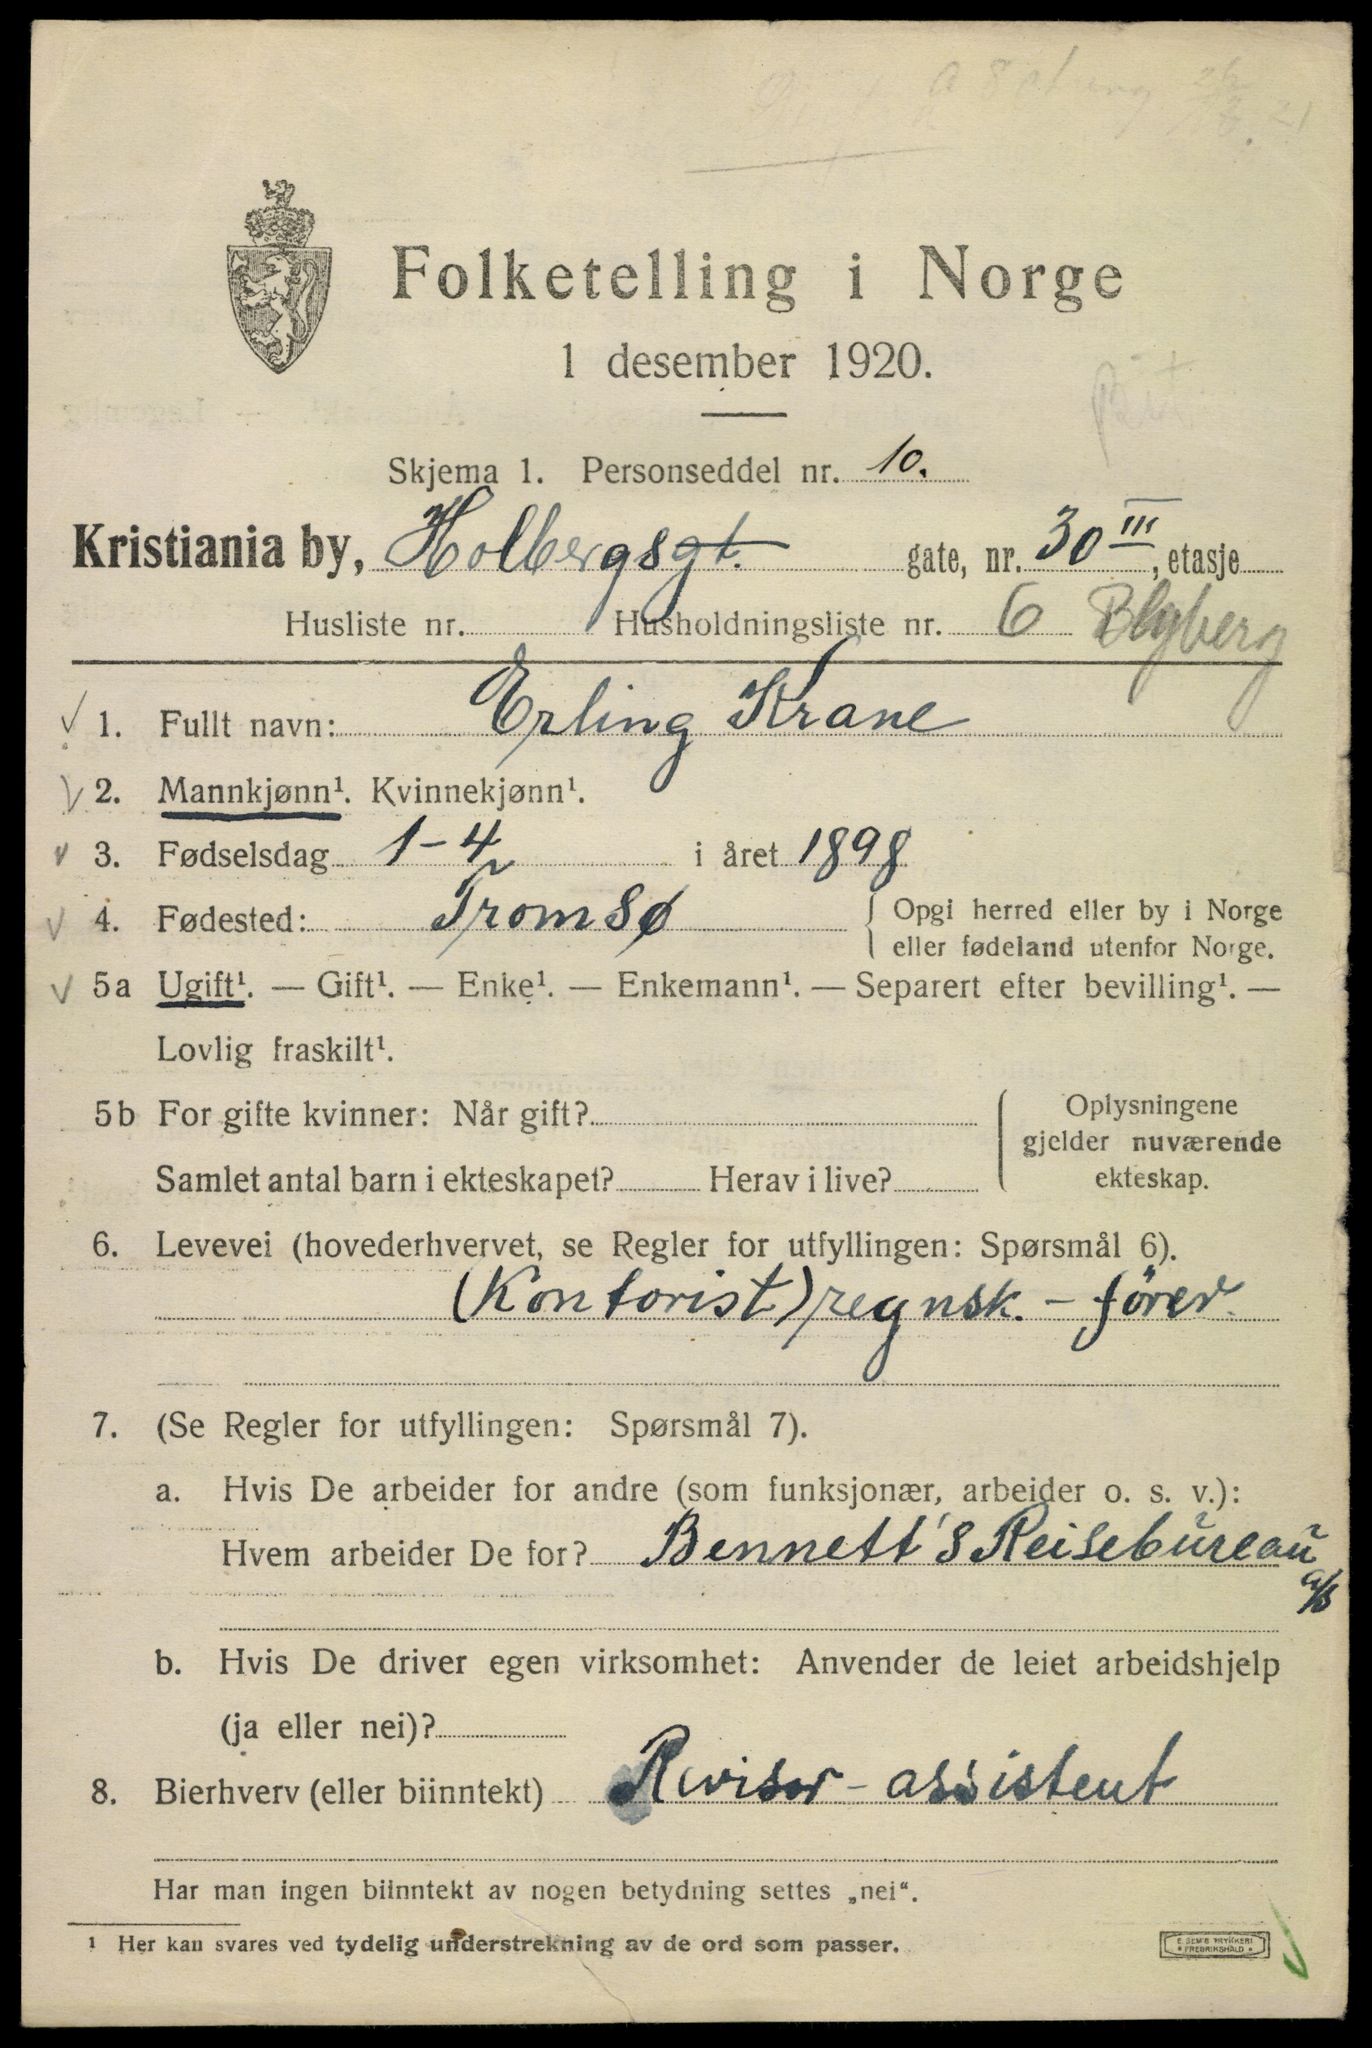 Folketelling i Norge
1 desember 1920.
Skjema 1. Personseddel nr. 10.
Kristiania by, Holbergsgt. gate, nr. 30 III, etasje
Husliste nr. Husholdningsliste nr. 6 Blyberg
1. Fullt navn: Erling Krane
2. Mannkjønn¹. Kvinnekjønn¹.
3. Fødselsdag 1-4 i året 1898
4. Fødested: Tromsø { Opgi herred eller by i Norge
eller fødeland utenfor Norge.
5a Ugift¹. — Gift¹. — Enke¹. — Enkemann¹. — Separert efter bevilling¹. —
Lovlig fraskilt¹.
5b For gifte kvinner: Når gift? { Oplysningene
gjelder nuværende
Samlet antal barn i ekteskapet? Herav i live? ekteskap.
6. Levevei (hovederhvervet, se Regler for utfyllingen: Spørsmål 6).
(Kontorist) regnsk. - förer.
7. (Se Regler for utfyllingen: Spørsmål 7).
a. Hvis De arbeider for andre (som funksjonær, arbeider o. s. v.):
Hvem arbeider De for? Bennett's Reisebureau
a/s
b. Hvis De driver egen virksomhet: Anvender de leiet arbeidshjelp
(ja eller nei)?
8. Bierhverv (eller biinntekt) Revisor - assistent
Har man ingen biinntekt av nogen betydning settes „nei“.
¹ Her kan svares ved tydelig understrekning av de ord som passer.
E. SEM'S TRYKKERI
FREDRIKSHALD